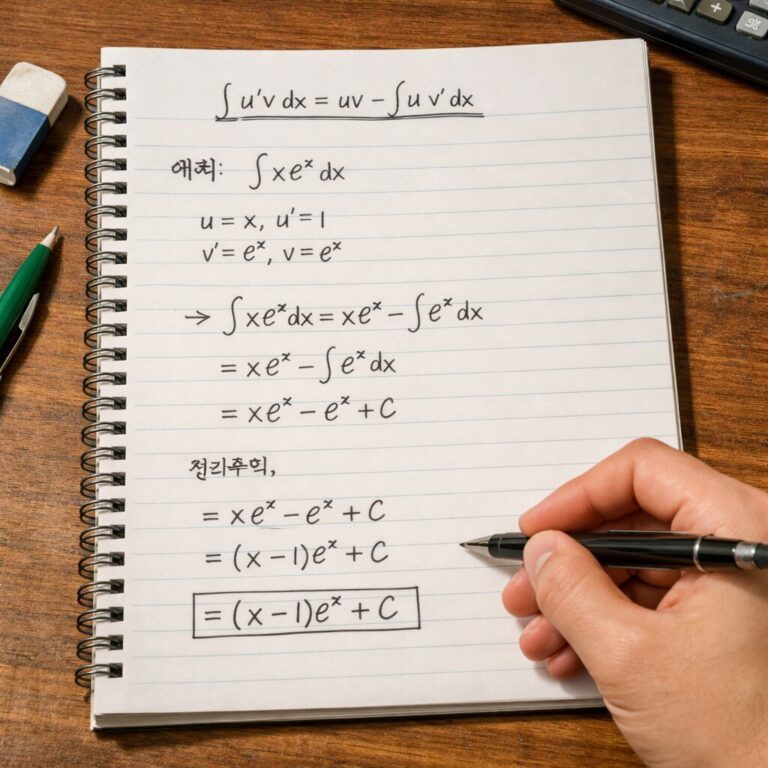 ∫ u'v dx = uv − ∫ u v' dx
∫ x eˣ dx
u = x, u' = 1
v' = eˣ, v = eˣ
→ ∫ xeˣ dx = xeˣ − ∫ eˣ dx
= xeˣ − ∫ eˣ dx
= xeˣ − eˣ + C
= xeˣ − eˣ + C
= (x − 1)eˣ + C
= (x − 1)eˣ + C